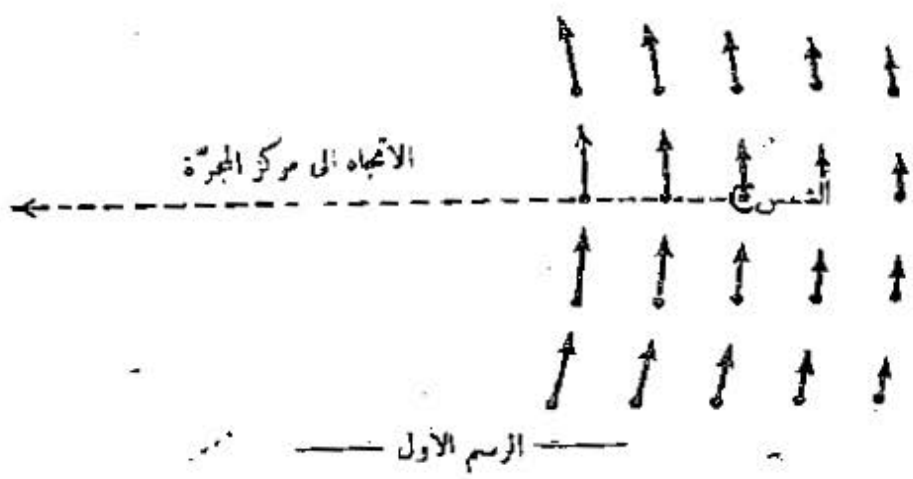 الاتجاه الى مركز المجرّة
الشمس
الرسم الأول